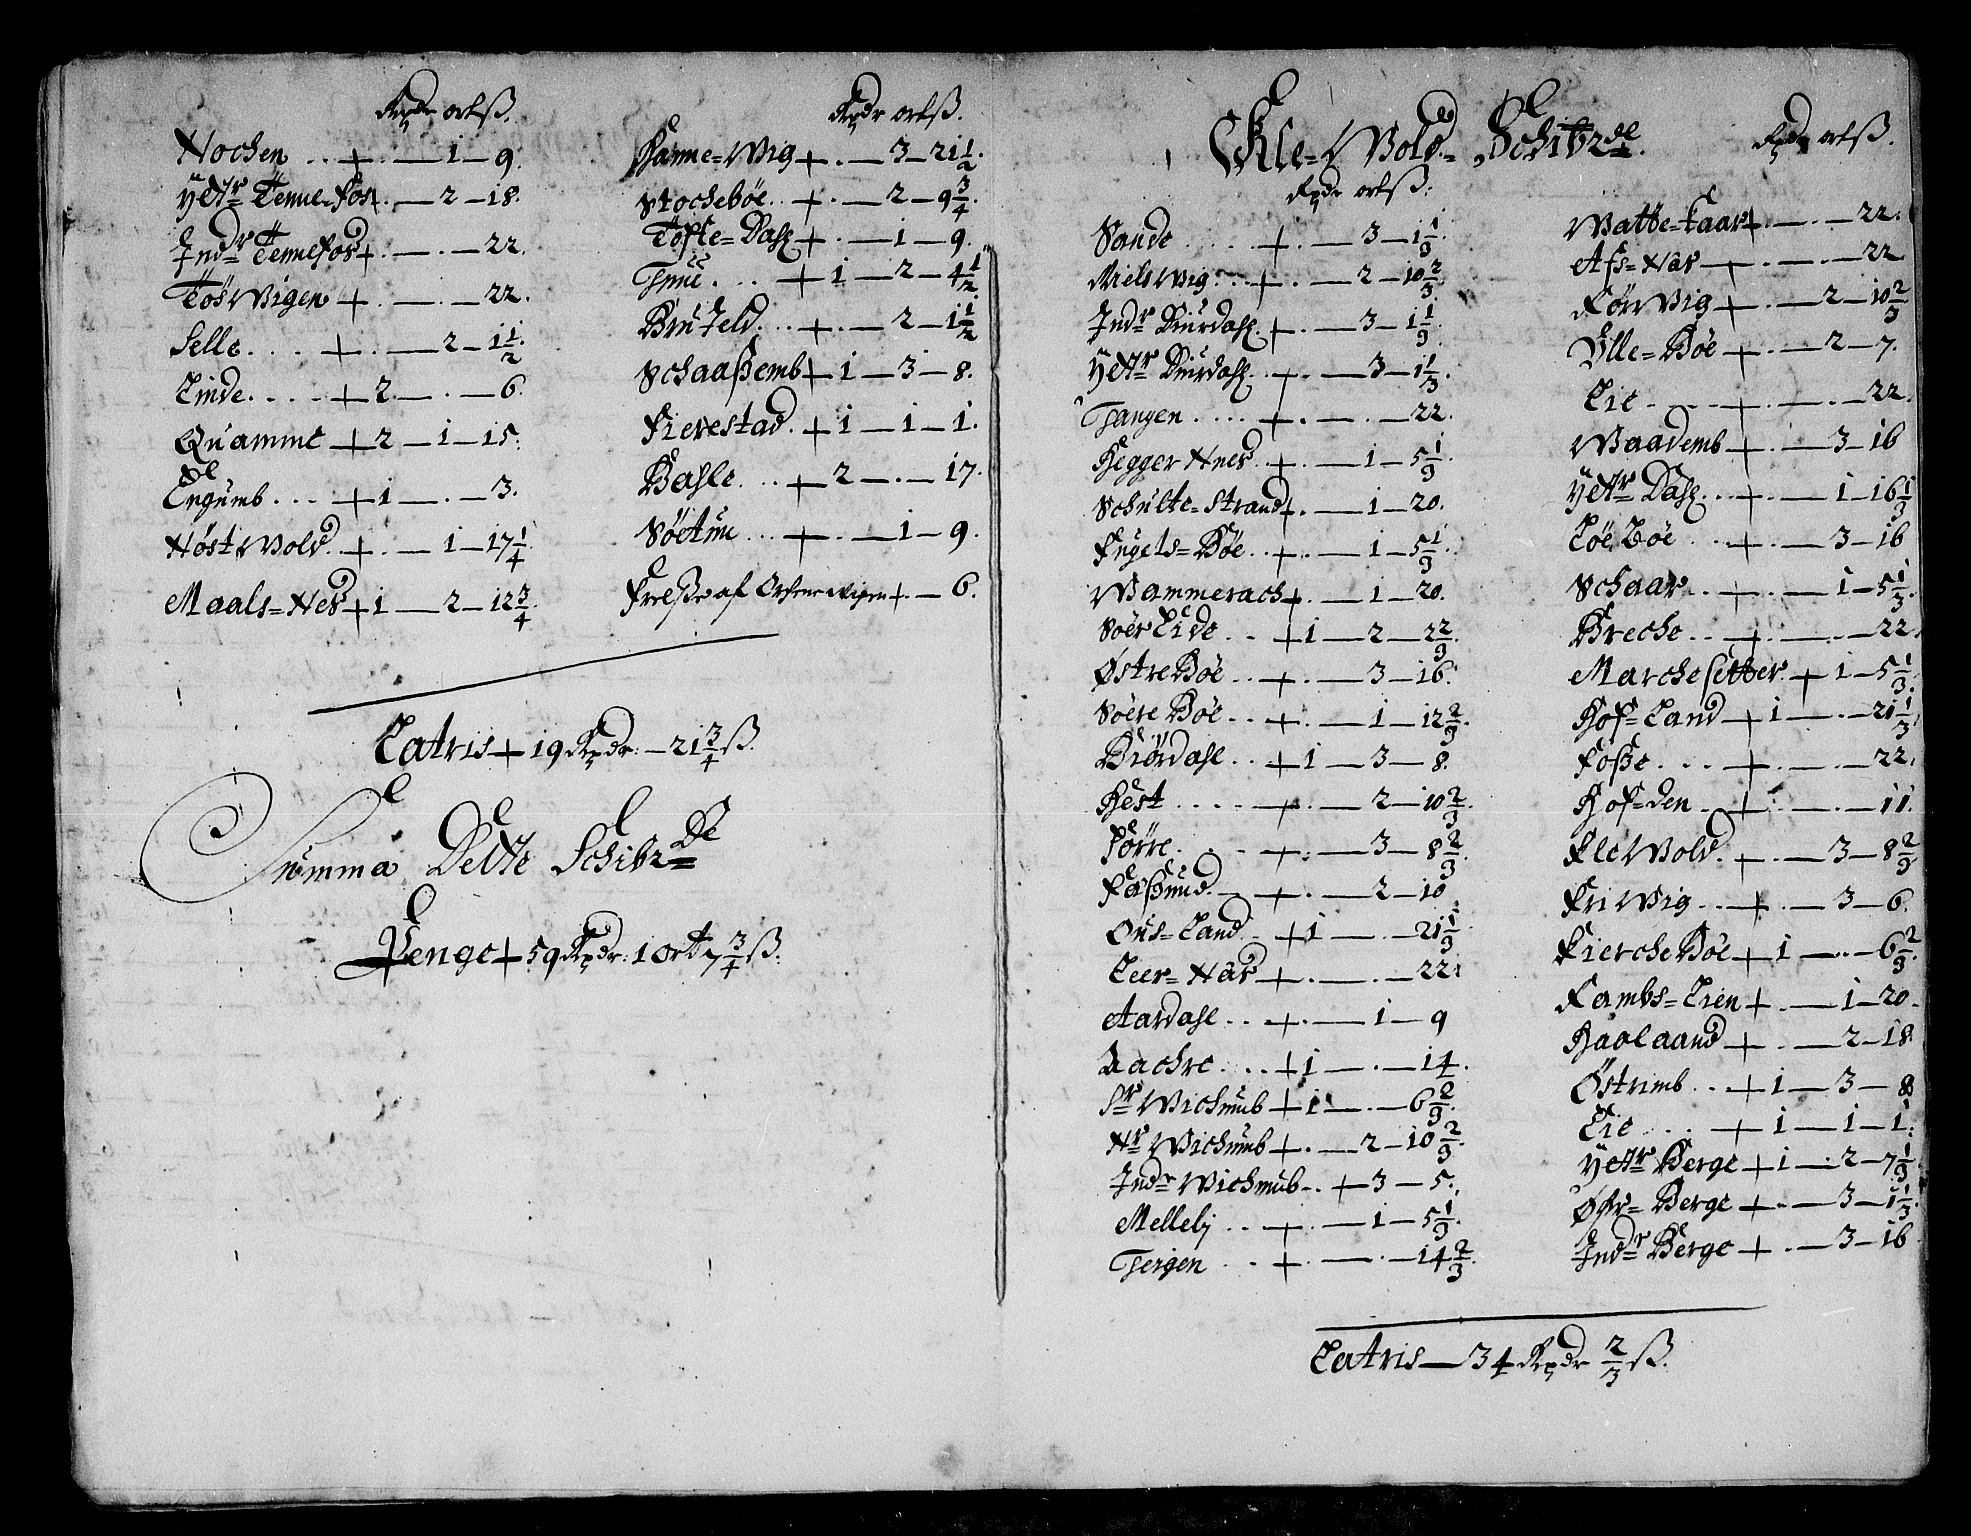 Rpdr ort ß.
Nochen . . + . — 1 — 9.
Yttr Tenne-fos + . — 2 — 18.
Indr Tennefos + . — . — 22.
Tös Wigen + . — . — 22.
Selle . . . . + . — 2 — 1 1/2.
Linde . . . . + 2 — . — 6.
Quamme + 2 — 1 — 15.
Engumb . . . + 1 — . — 3.
Nøst Wold . + . — 1 — 17 1/4.
Maals=Nes + 1 — 2 — 12 3/4.
Rpdr ort ß.
Hanne=Wig + . — 3 — 21 1/2.
Stochebøe . . + . — 2 — 9 3/4.
Tøfte=Dahl + . — 1 — 9.
. . . + 1 — 2 — 4 1/2.
. . . + . — 2 — 1 1/2
Schaaßemb + 1 — 3 — 8.
Fierestad . + 1 — 1 — 1.
Hafle . . . + 2 — . — 17.
Søetun . . . + . — 1 — 9.
af + . — 6.
Latris + 19 Rpdr: — 21 3/4 ß.
Summa Dette Schibr de
Penge + 59 Rpdr: 1 ort 7 3/4 ß.
Kle=Wold= Schibr de.
Rpdr ort ß:
Sande . . . . + . — 3 — 1 1/3
Niels Wig . . + . — 2 — 10 2/3.
Indr Diurdahl . + . — 3 — 1 1/3.
Yttr Diurdahl . + . — 3 — 1 1/3
Tangen . . . . + . — . — 22.
Hegger Nnes . + . — 1 — 5 1/3
Schülte=Strand + . — 1 — 20.
Fugels=Bøe . . + . — 1 — 5 1/3.
Wammerach + . — 1 — 20.
Søer Eide . . + 1 — 2 — 2 2/3.
Østre Bøe . . + . — 3 — 16.
Søere Bøe . . + . — 1 — 12 2/3.
Diørdahl . . + 1 — 3 — 8.
Hest . . . . + . — 2 — 10 2/3.
Førre . . . + . — 3 — 8 2/3.
Faßund . — + . — 2 — 10
Ous=Land . + 1 — . — 21 1/3
Leer=Nâs + . — . — 22.
Aardahl . . + . — 1 — 9
Aachre . . . + 1 — . — 14.
Sr Wichumb + 1 — . — 6 2/3.
Nr Wichumb + . — 2 — 10 2/3.
Indr Wichumb . . + 3 — 5.
Mellebj . . + . — 1 — 5 1/3.
Teigen . . + . — . — 14 2/3.
Rpdr ort ß.
Watte=Kaar + . — . — 22.
Afs=Nâs — + . — . — 22
Førr Wig + . — 2 — 10 2/3
Ylle=Bøe + . — 2 — 7.
Lie . . . . + . — . — 22.
Waademb + . — 3 — 16
Yttr Dahl . . + . — 1 — 16 1/3
Løe Bøe . . + . — 3 — 16
Schaar . . + . — 1 — 5 1/3.
Breche . . + . — . — 22.
Marchesetter + 1 — 5 1/3.
Hof=Land + 1 — . — 21 1/3
Foße . . . + . — . — 22.
Hof=den . + . — . — 11.
Fle Wold . + . — 3 — 8 2/3
Fri Wig . . + . — 3 — 6.
Kierche Bøe + 1 — . — 6 2/3.
Rambs=Lien + . — 1 — 20.
Haolaand + . — 2 — 18
Østrimb . . + 1 — 3 — 8
Lie . . . + 1 — 1 — 1.
Yttr Berge + 1 — 2 — 7 1/3
Øfr= Berge + . — 3 — 1 1/3.
Indr Berge + . — 3 — 16
Latris — 34 Rpdr 2/3 ß.